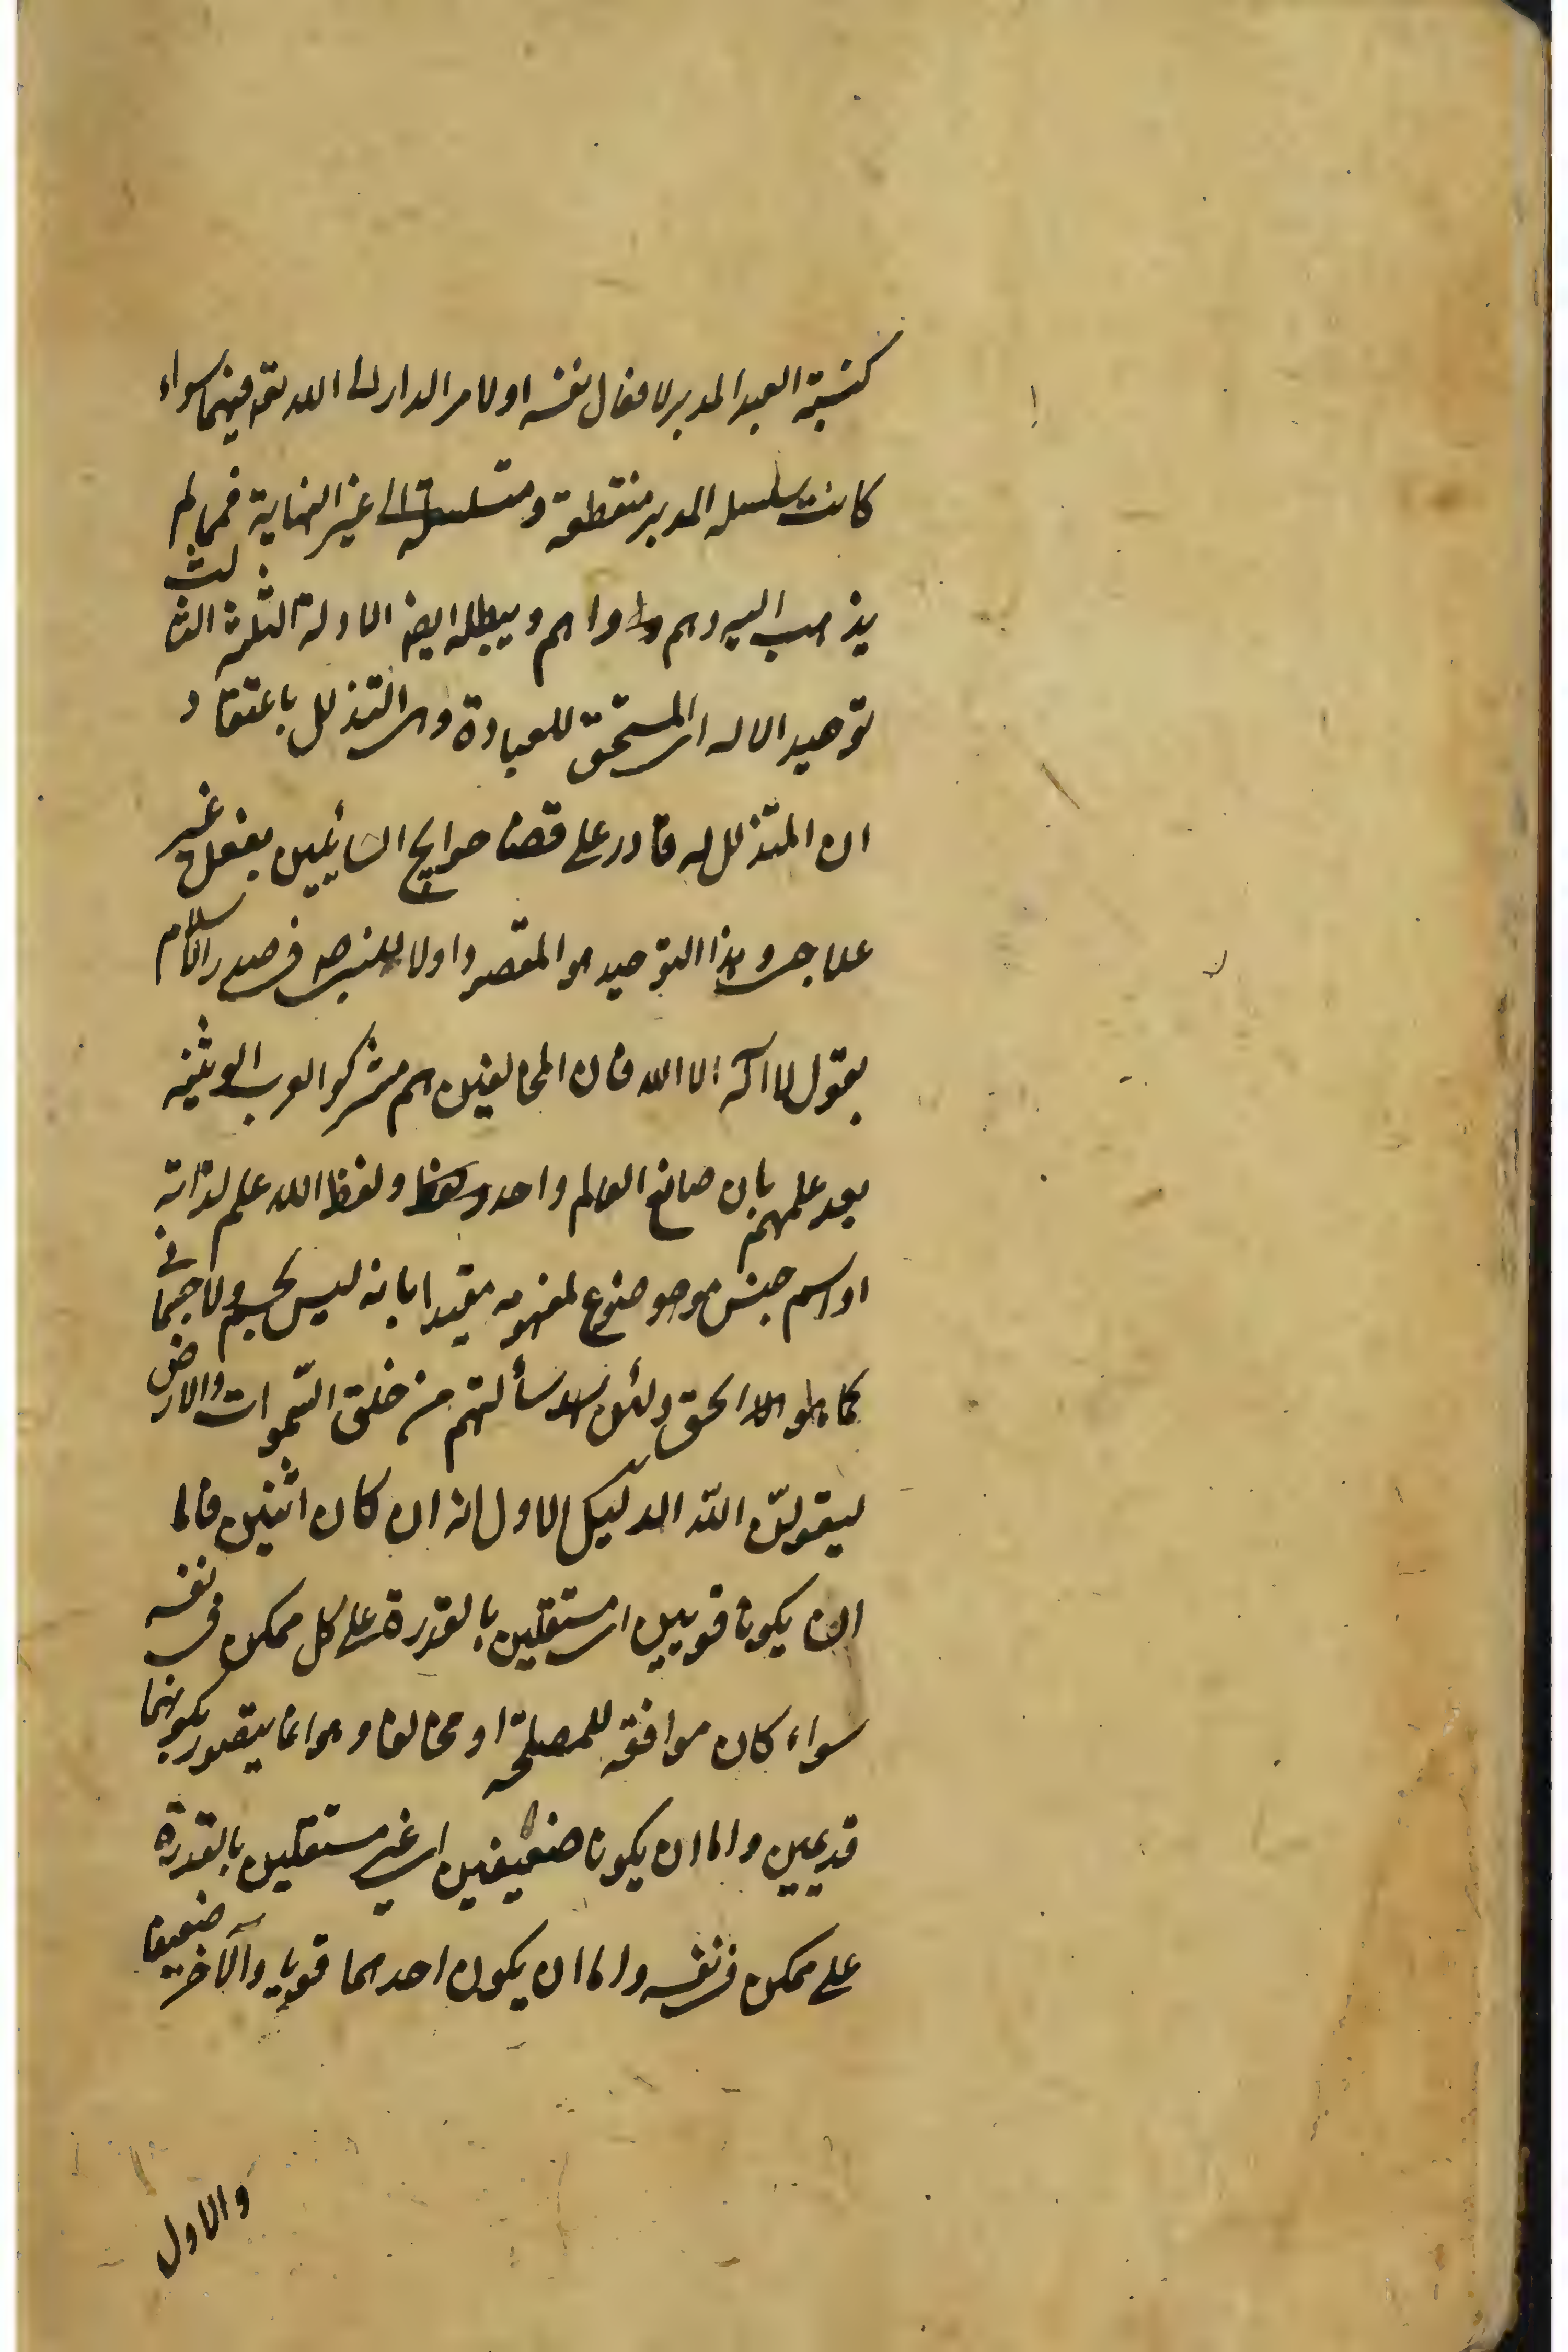 كنسبة العبد المدبر لافعال نفسه اولامر الدار الى الله تعـ فيهما سواء
كانت سلسله المدبر منقطعة ومتسلسلة الى غير النهاية فمما لم
يذهب اليه وهم واهم ويبطله ايضـ الادلة الثلثة الثالث
توحيد الاله اى المستحق للعبادة وهى التذلل باعتقاد
ان المتذلل له قادر على قضاء حوايج السائلين بفعل غير
علاجى وهذا التوحيد هو المقصود اولا للنبى صـ فى صدر الاسلام
بقول لا اله الا الله فان المخالفين هم مشركوا العرب الوثنية
بعد علمهم بان صانع العالم واحد ولفظ الله علم لذاته
او اسم جنس موضوع لمفهومه مقيدا بانه ليس بجسم ولا جسمانى
كما هو الحق ولئن سألتهم من خلق السموات والارض
ليقولن الله الدليل الاول انه ان كان اثنين فاما
ان يكونا قويين اى مستقلين بالقدرة على كل ممكن فى نفسه
سواء كان موافقه للمصلحة او مخالفا وهو انما يتصور بكونهما
قديمين واما ان يكونا ضعيفين اى غير مستقلين بالقدرة
على ممكن فى نفسه واما ان يكون احدهما قويا والآخر ضعيفا
والاول